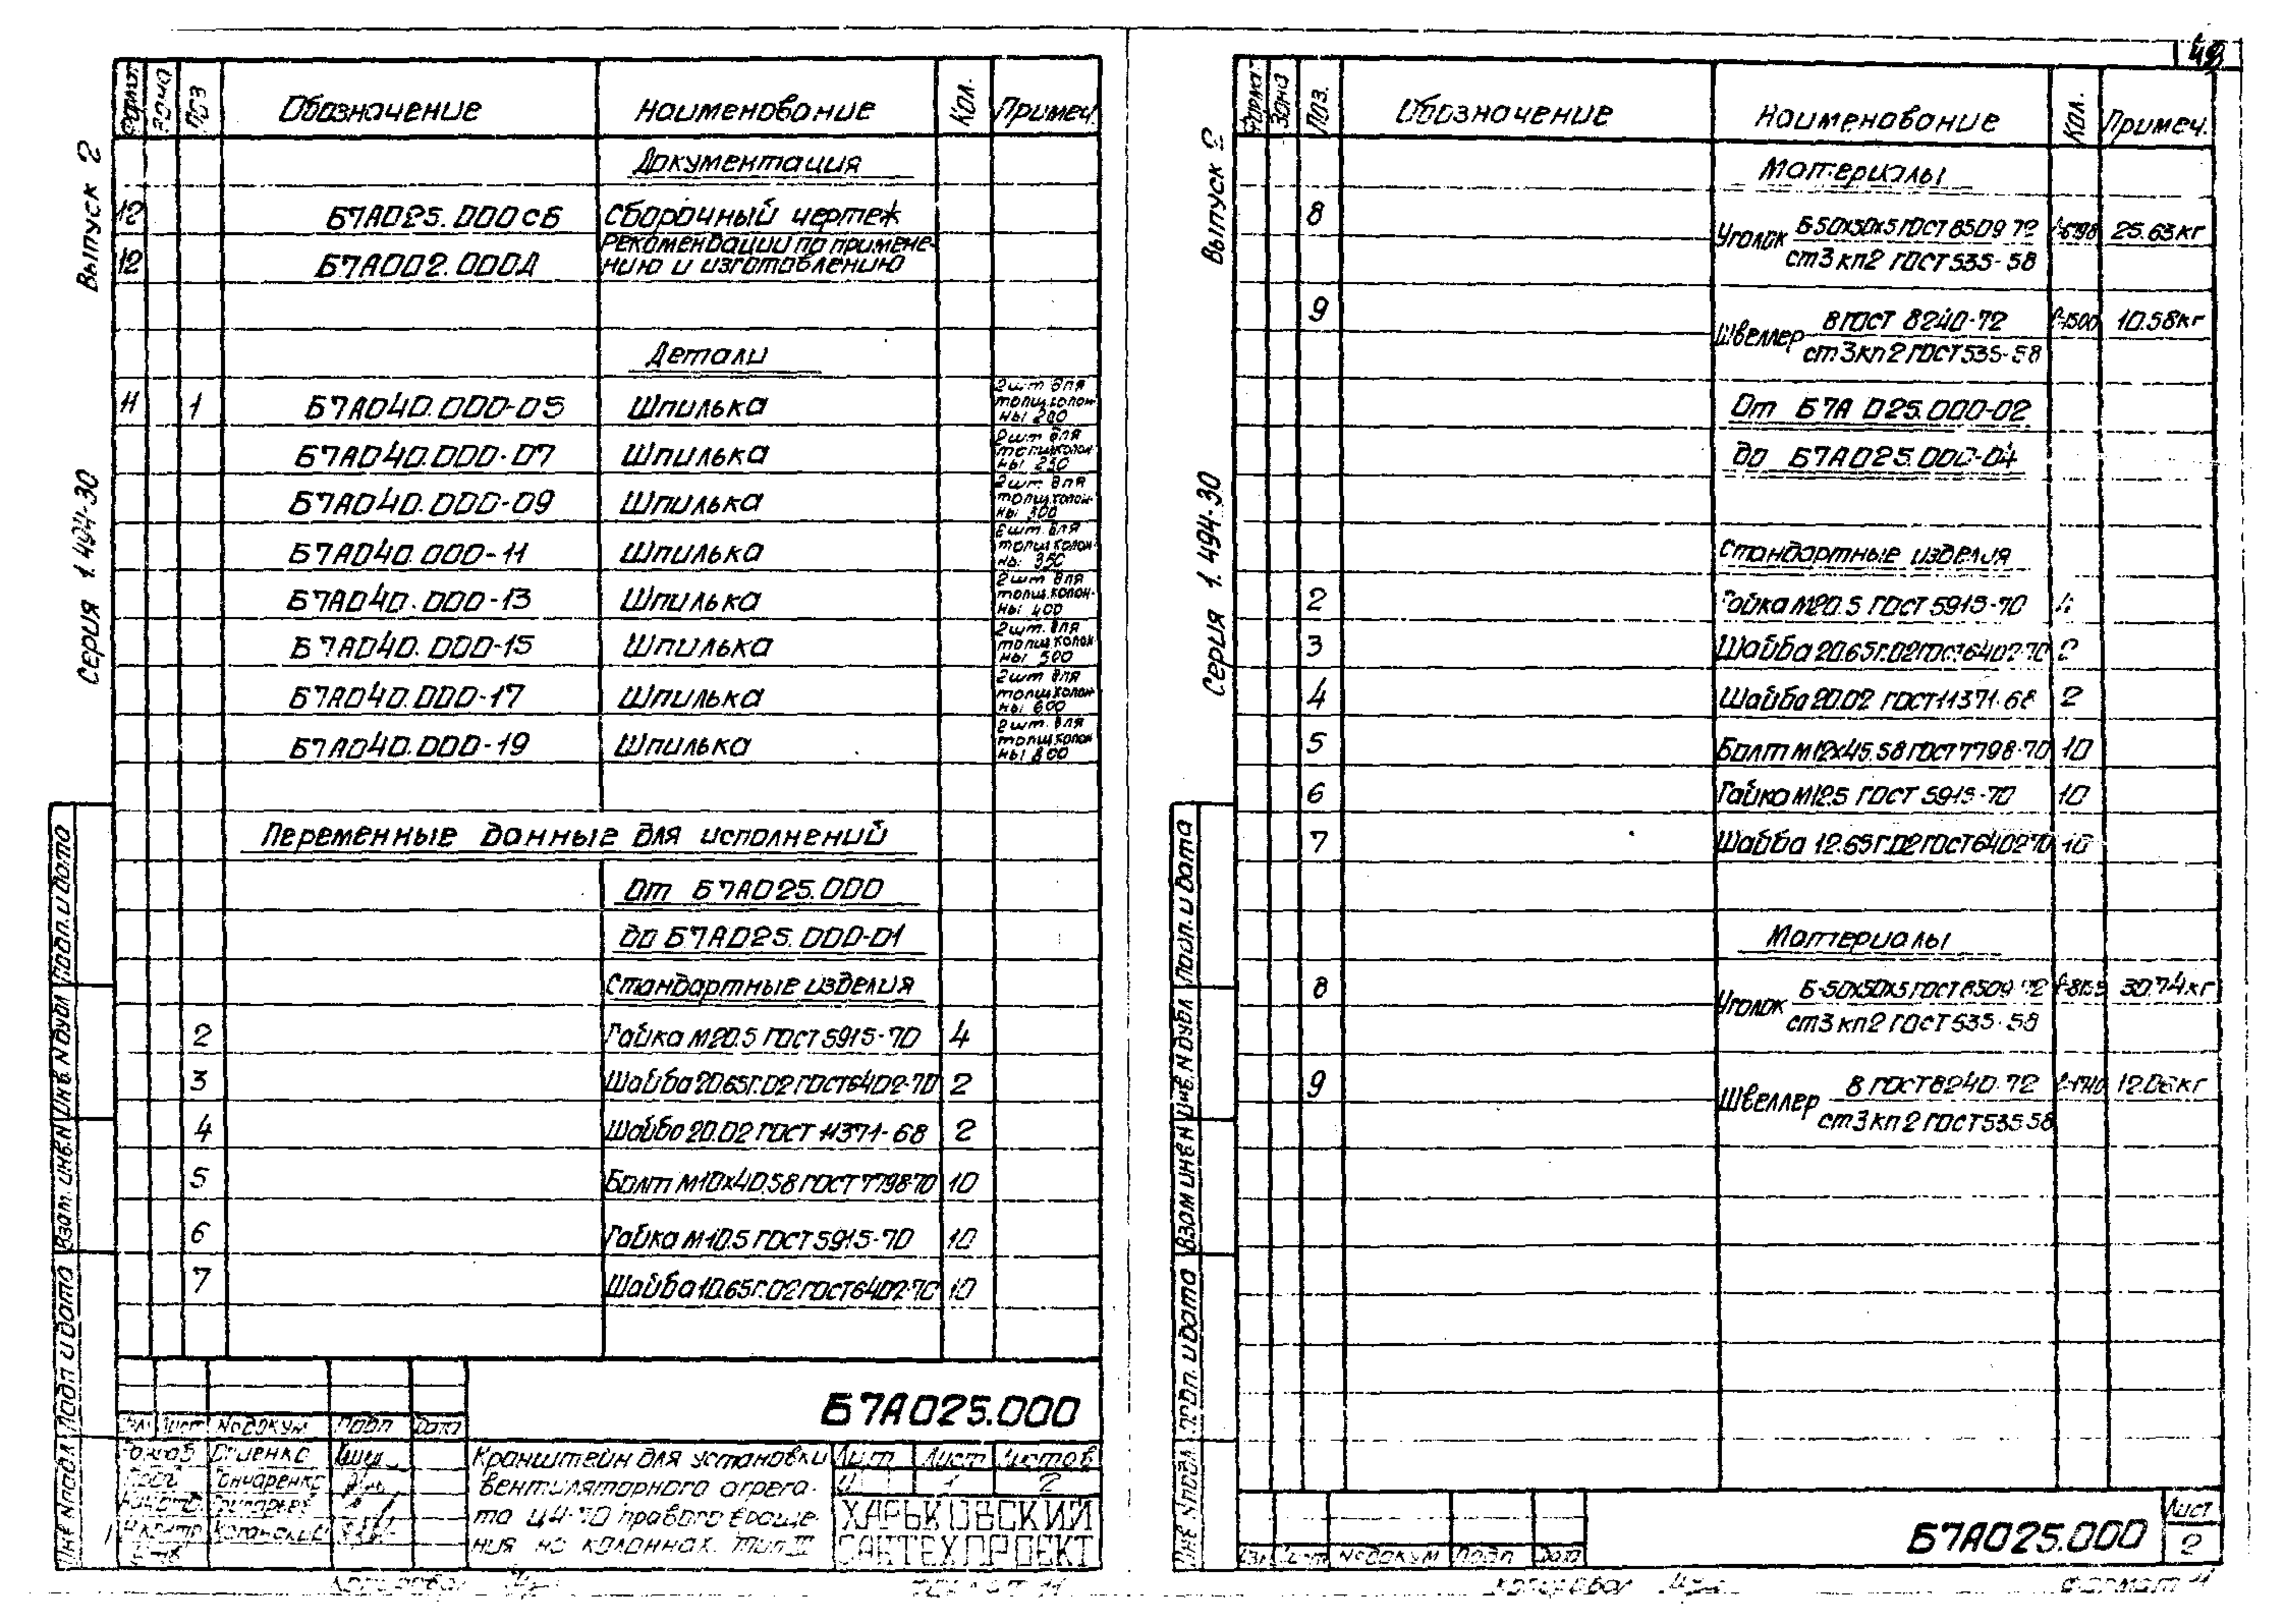 Выпуск 2
Серия 1.494-30
Формат Зона Поз Обозначение Наименование Кол. Примеч.
Документация
12 Б7А025.000СБ Сборочный чертеж
12 Б7А002.000Д Рекомендации по примене-
нию и изготовлению
Детали
11 1 Б7А040.000-05 Шпилька 2шт для толщ.колон-ны 200
Б7А040.000-07 Шпилька 2шт для толщ.колон-ны 250
Б7А040.000-09 Шпилька 2шт для толщ.колон-ны 300
Б7А040.000-11 Шпилька 2шт. для толщ.колон-ны 350
Б7А040.000-13 Шпилька 2шт для толщ.колон-ны 400
Б7А040.000-15 Шпилька 2шт. для толщ.колон-ны 500
Б7А040.000-17 Шпилька 2шт для толщ.колон-ны 600
Б7А040.000-19 Шпилька 2шт. для толщ.колон-ны 800
Переменные данные для исполнений
От Б7А025.000
до Б7А025.000-01
Стандартные изделия
2 Гайка М20.5 ГОСТ 5915-70 4
3 Шайба 20.65Г.02 ГОСТ 6402-70 2
4 Шайба 20.02 ГОСТ 11371-68 2
5 Болт М10х40.58 ГОСТ 7798-70 10
6 Гайка М10.5 ГОСТ 5915-70 10
7 Шайба 10.65Г.02 ГОСТ 6402-70 10
Инв. № подл. Подп. и дата Взам. инв. № Инв. № дубл. Подп. и дата
Б7А025.000
Лист № докум Подп Дата
Гончаренко
Кранштейн для установки
вентиляторного агрега-
та Ц4-70 правого враще-
ния на колоннах. Тип III
Лит Лист Листов
И 1 2
ХАРЬКОВСКИЙ
САНТЕХПРОЕКТ
Копировал
Формат 11
Выпуск 2
Серия 1.494-30
Формат Зона Поз. Обозначение Наименование Кол. Примеч.
Материалы
8 Уголок Б-50х50х5 ГОСТ 8509-72 25.63кг
ст3кп2 ГОСТ 535-58
9 Швеллер 8 ГОСТ 8240-72 ℓ-1500 10.58кг
ст3кп2 ГОСТ 535-58
От Б7А025.000-02
до Б7А025.000-04
Стандартные изделия
2 Гайка М20.5 ГОСТ 5915-70 4
3 Шайба 20.65Г.02 ГОСТ 6402-70 2
4 Шайба 20.02 ГОСТ 11371-68 2
5 Болт М12х45.58 ГОСТ 7798-70 10
6 Гайка М12.5 ГОСТ 5915-70 10
7 Шайба 12.65Г.02 ГОСТ 6402-70 10
Материалы
8 Уголок Б-50х50х5 ГОСТ 8509-72 30.74кг
ст3кп2 ГОСТ 535-58
9 Швеллер 8 ГОСТ 8240-72 ℓ-1710 12.06кг
ст3кп2 ГОСТ 535-58
Инв. № подл. Подп. и дата Взам инв. № Инв. № дубл. Подп. и дата
Лист № докум Подп Дата
Б7А025.000
Лист
2
Копировал
Формат 11